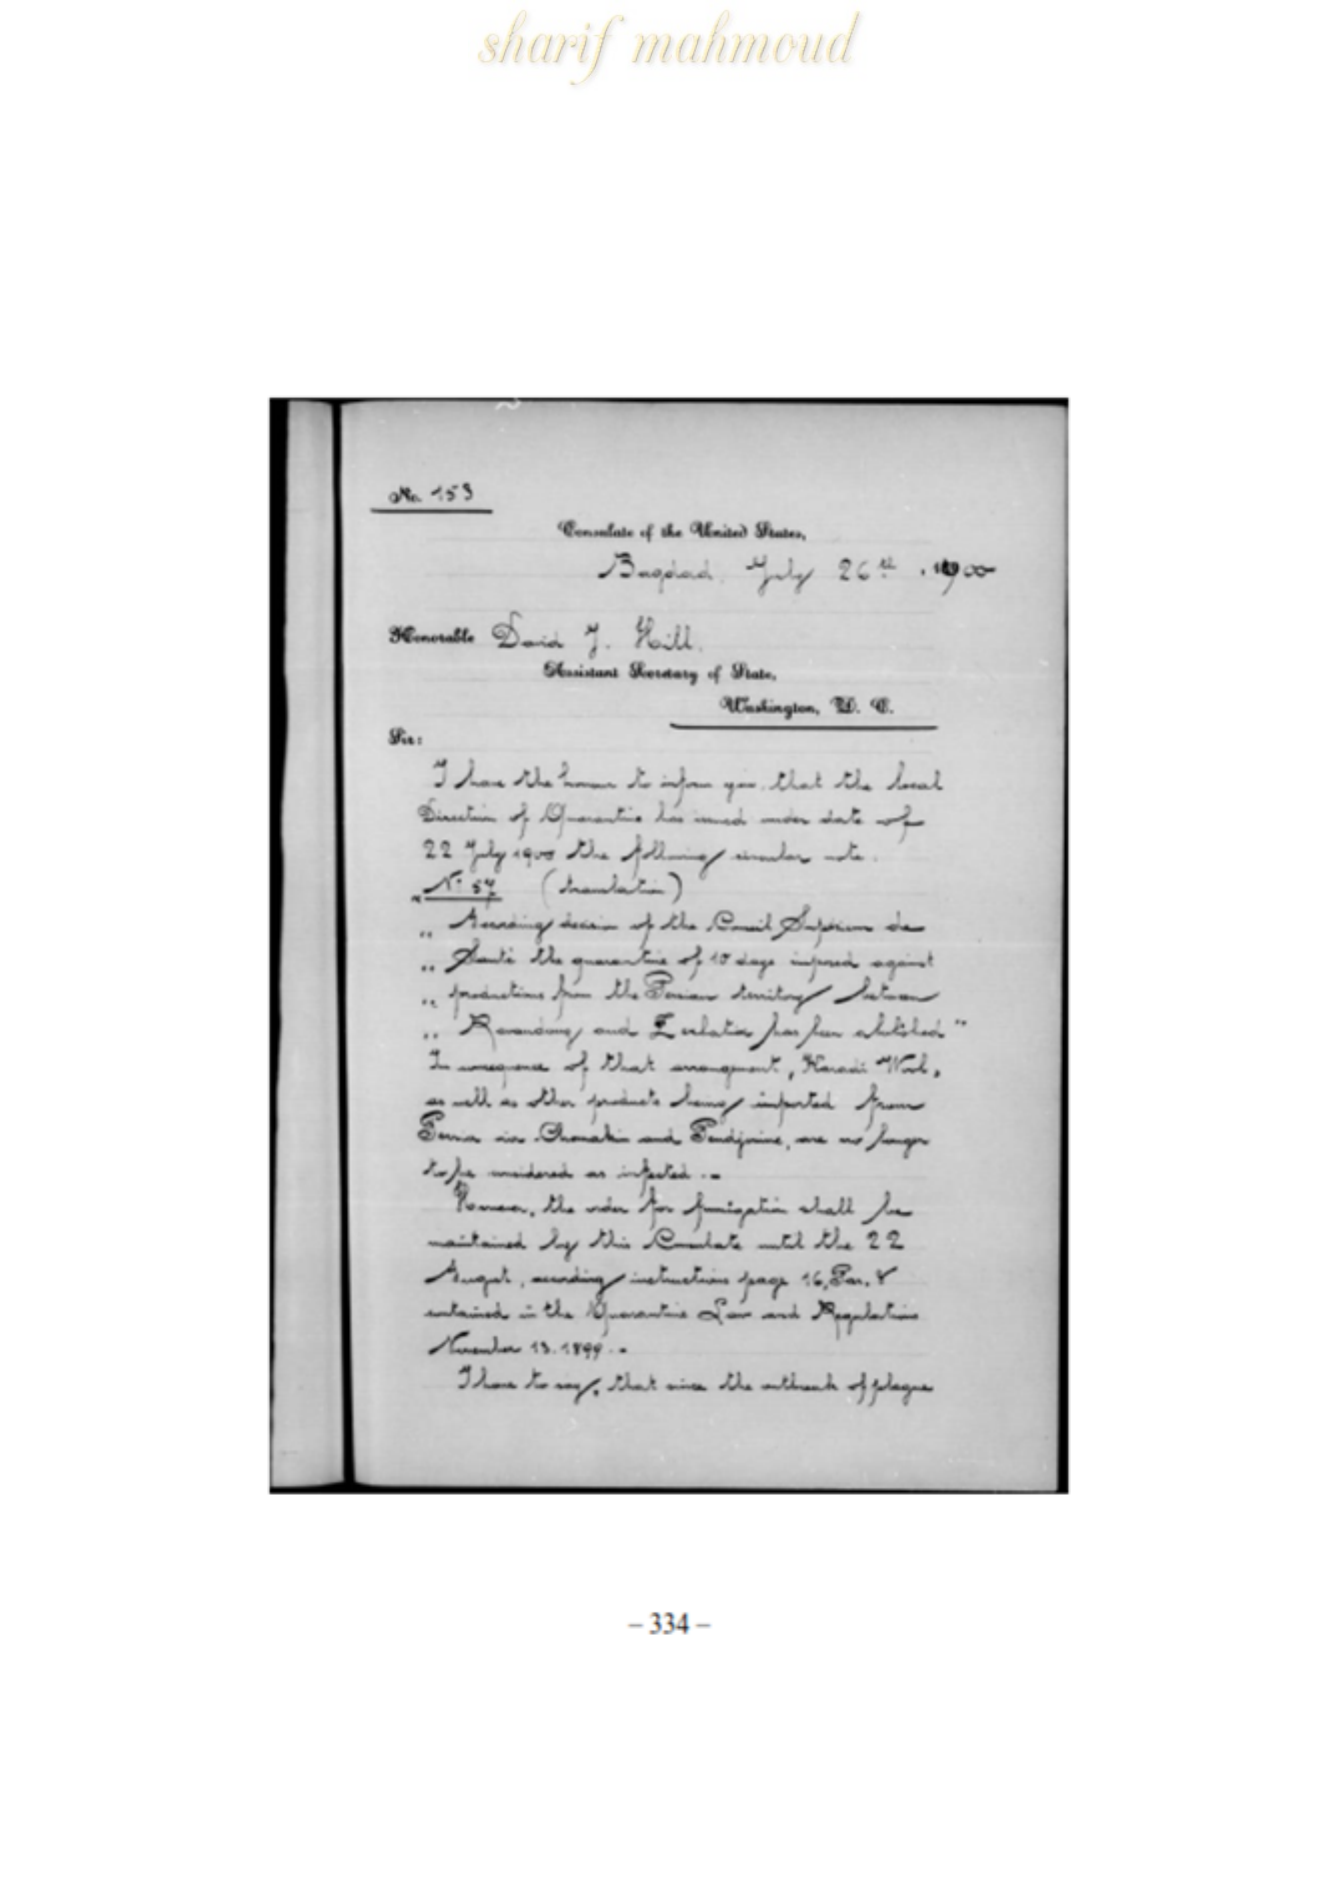 sharif mahmoud
No. 153
Consulate of the United States,
Bagdad, July 26th, 1900
Honorable David J. Hill.
Assistant Secretary of State,
Washington, D. C.
Sir:
I have the honour to inform you, that the local
Direction of Quarantine has issued under date of
22 July 1900 the following circular note.
"No. 57 (translation)
" According decision of the Conseil Supérieur de
" Santé the quarantine of 10 days imposed against
" productions from the Persian territory between
" Ravandouz and has been abolished"
In consequence of that arrangement, Karadi Wool,
as well as other products being imported from
Persia via Chanakin and Pendjvine, are no longer
to be considered as infected.-
However, the order for fumigation shall be
maintained by this Consulate until the 22
August, according instructions page 16, Par. 8
contained in the Quarantine Law and Regulations
November 13. 1899.-
I have to say, that since the outbreak of plague
– 334 –